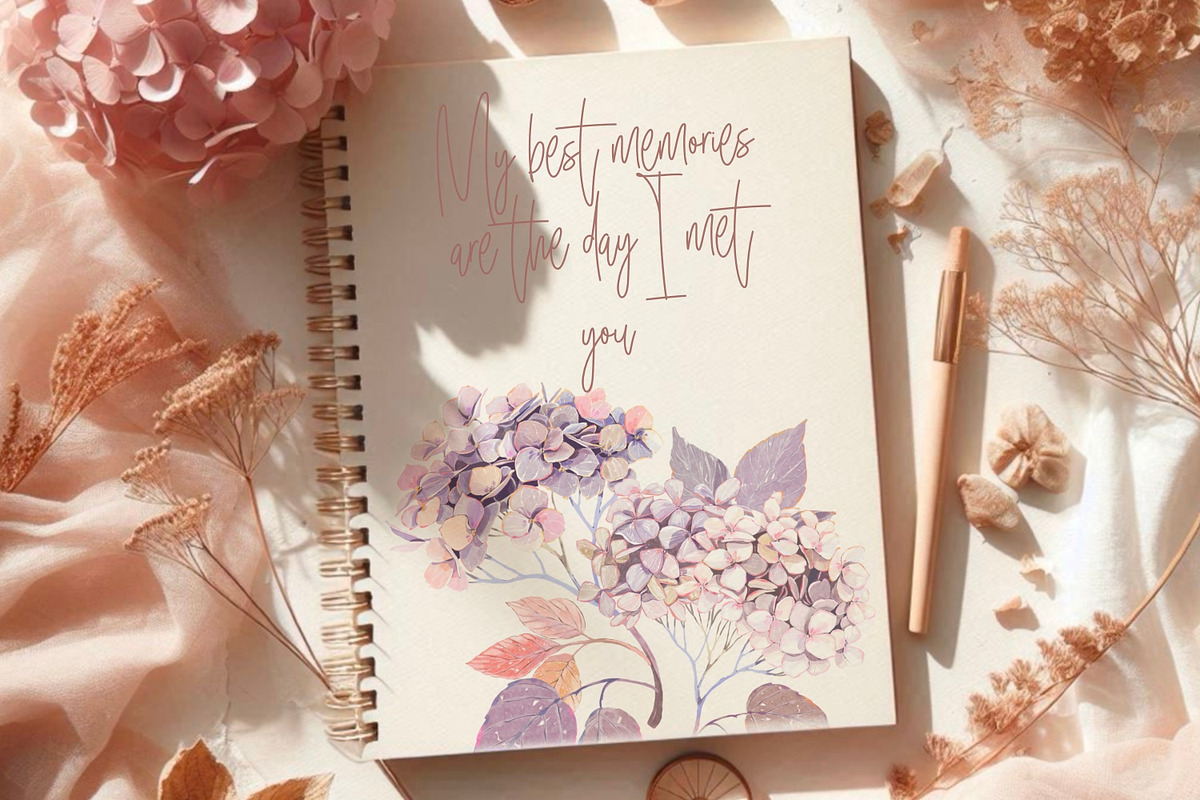 My best memories
are the day I met
you